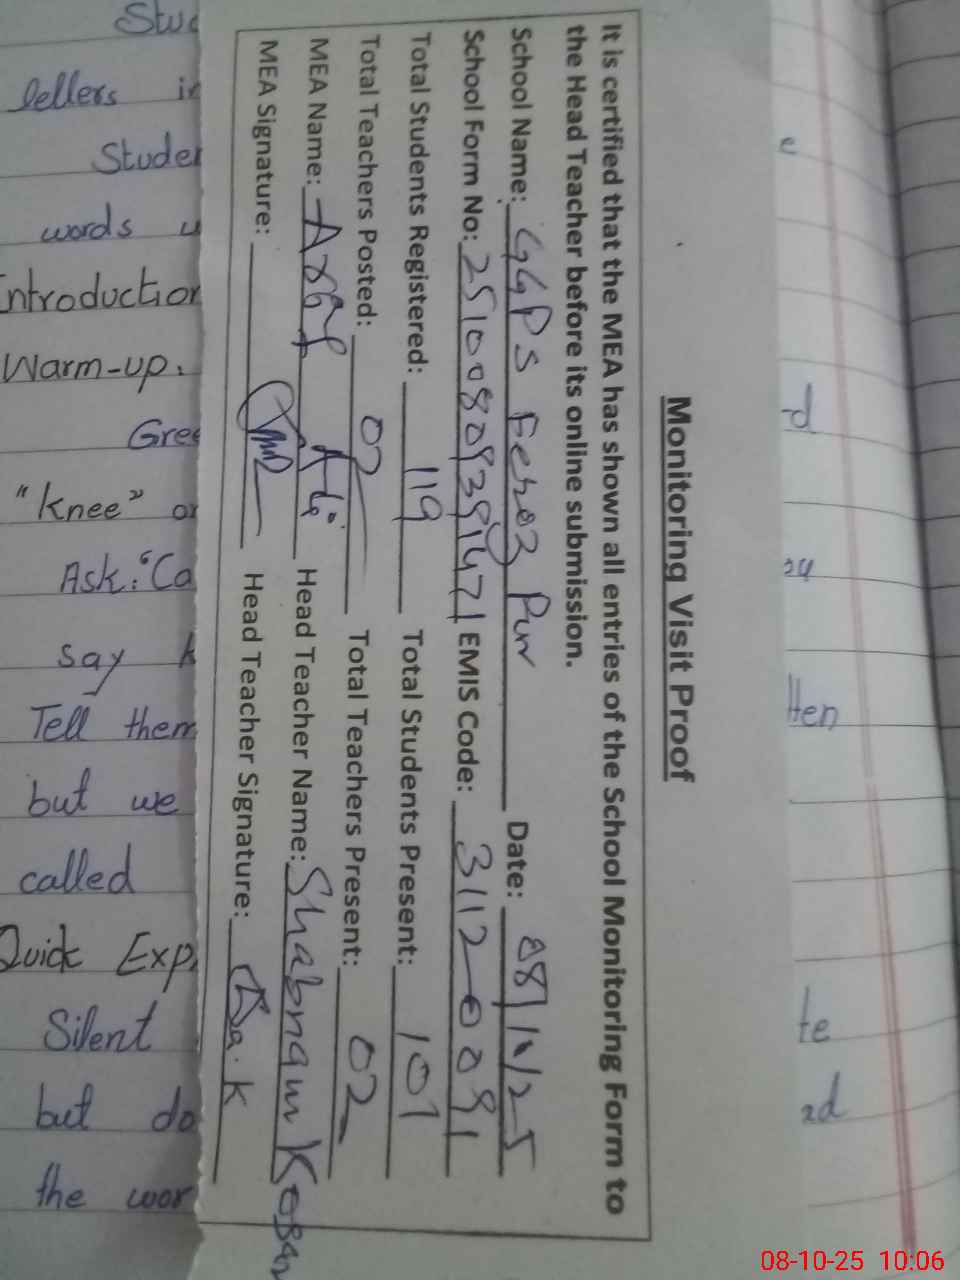 Monitoring Visit Proof
It is certified that the MEA has shown all entries of the School Monitoring Form to
the Head Teacher before its online submission.
School Name: GGPS Feroz Pur Date: 08/10/25
School Form No: EMIS Code: 31120091
Total Students Registered: 119 Total Students Present: 101
Total Teachers Posted: 02 Total Teachers Present: 02
MEA Name: Ali Head Teacher Name: Shabnam Kosar
MEA Signature: Head Teacher Signature: K
letters
words
Introduction
Warm-up.
"Knee" or
Ask: "Ca
say k
Tell them
but we
called
Quick Exp
Silent
but do
the wor
08-10-25 10:06